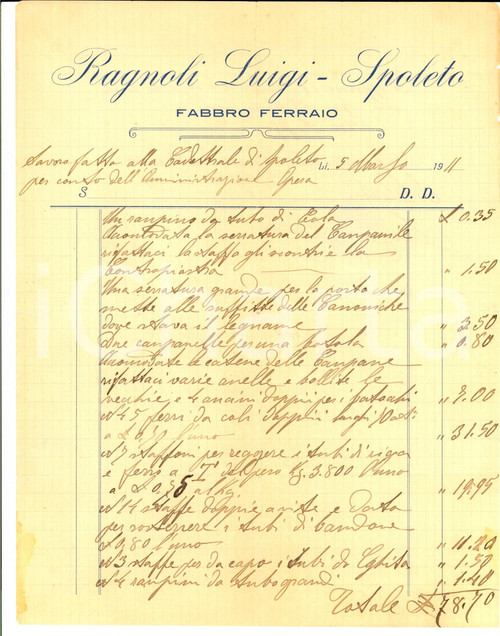 Ragnoli Luigi - Spoleto
FABBRO FERRAIO
Lavoro fatto alla Cattedrale di Spoleto Li, 5 Marzo 1911
per conto dell Amministrazione Opera
S D. D.
Un rampino da tubo di Cola £ 0.35
Accomodata la serratura del Campanile
rifattaci la staffa gli scontri e la
Contropiastra " 1.50
Una serratura grande per la porta che
mette alle suffitte delle Canoniche
dove stava il legname " 3.50
Due campanelle per una botola " 0.80
Accomodate le catene delle Campane
rifattaci varie anelle e bollite le
vecchie e 4 ancini doppi per i " 8.00
N 45 ferri da coli doppi lunghi
a £ 0.70 l'uno " 31.50
N 7 staffoni per reggere i tubi di
e ferro a T del peso Kg. 3.800 l'uno
a £ 0,75 al Kg. " 19.95
N 14 staffe doppie a vite e dado
per sostenere i tubi di bandone
£ 0,80 l'uno " 11.20
N 3 staffe per da capo i tubi di Ghisa " 1.50
N 4 rampini da tubo grandi " 1.40
Totale £ 78.70